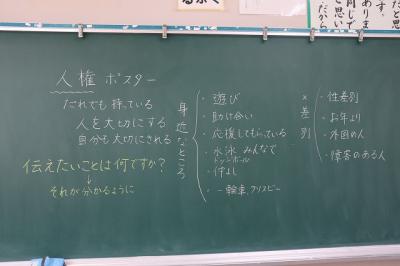 人権 ポスター
だれでも 持っている
人を大切にする
自分も大切にされる
伝えたいことは 何ですか?
↓
それが分かるように
身近なところ
・遊び
・助け合い
・応援してもらっている
・水泳 みんなで
ドッジボール
・仲よし
・一輪車、フリスビー
×差別
・性差別
・お年より
・外国の人
・障害のある人